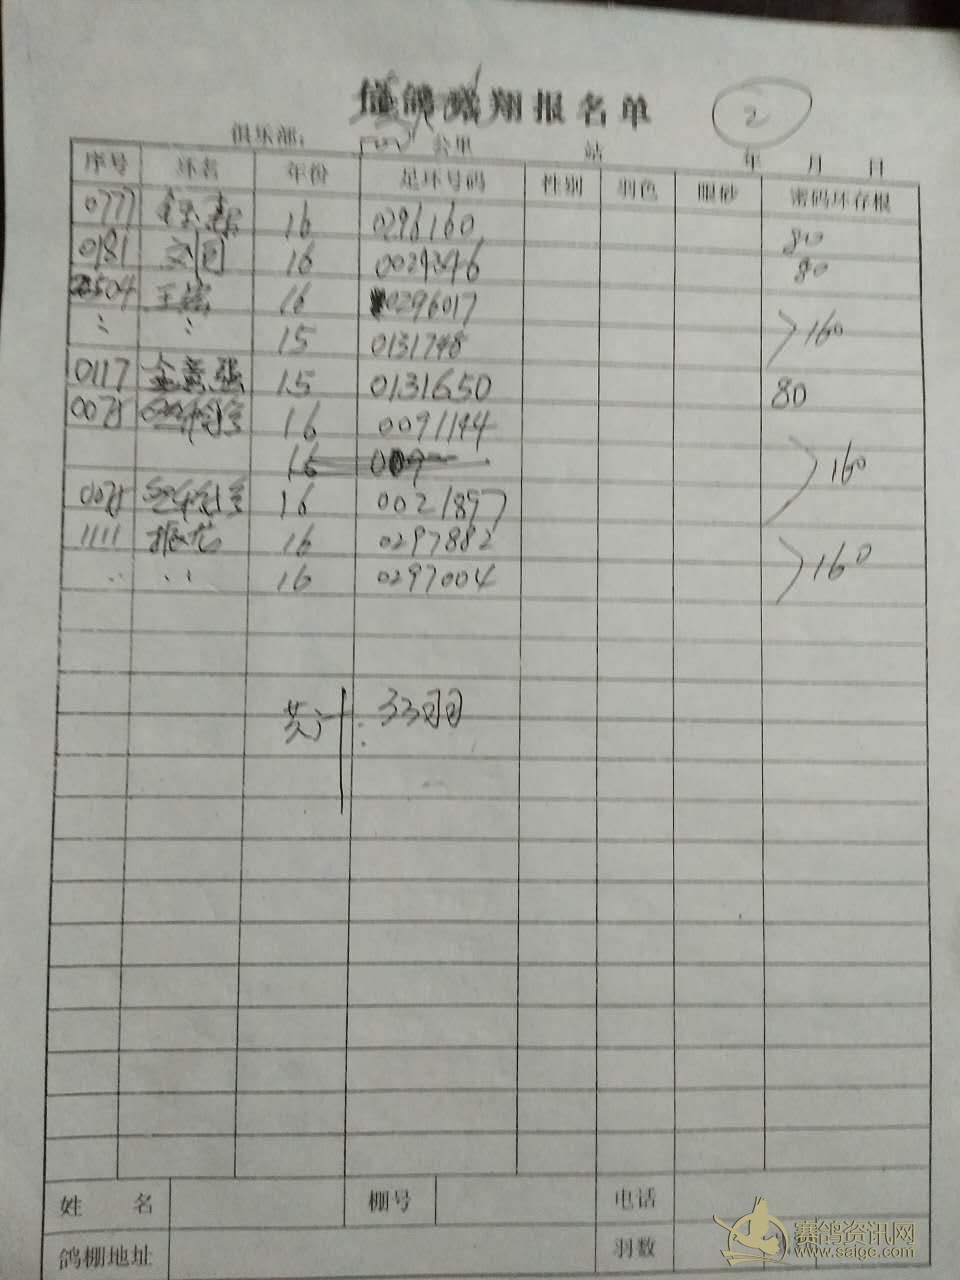 翔报名单 2
俱乐部: 公里 站 年 月 日
序号 环者 年份 足环号码 性别 羽色 眼砂 密码环存根
0777 16 0296160 80
0181 16 0029346 80
504 王 16 0296017
15 0131748 160
0117 金 强 15 0131650 80
16 0091144
16 160
16 0021897
1111 振龙 16 0297882
16 0297004 160
共计: 33羽
姓 名 棚号 电话
鸽棚地址 羽数
赛鸽资讯网
www.saige.com